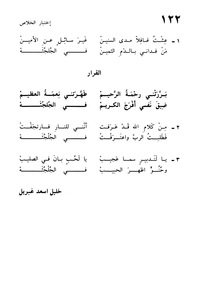 ١٢٢
إختبار الخلاص
١ - عِشْتُ غافِلاً مدى السنينْ غيرَ سائِلٍ عنِ الأمينْ
مَنْ فداني بالدمِ الثمينْ فــي الجُلْجُثَــهْ
القرار
بَرَّرَتْني رحْمةُ الرَّحيــمْ طهَّرتني نِعمةُ العظيمْ
ضيقَ نَفسي أفرَجَ الكريـمْ فــي الجُلْجُثَــهْ
٢ - مِنْ كلامِ اللهِ قَدْ عَرَفت أنَّني للنارِ فارتجفْتُ
فطلبتُ الربَّ واعترَفْتُ فــي الجُلْجُثَــهْ
٣ - يا لَتَدبيرٍ سما عجيبْ يا لَحُبٍّ بانَ في الصليبْ
وحُنُوٍّ أظهرَ الحبيبْ فــي الجُلْجُثَــهْ
خليل اسعد غبريل